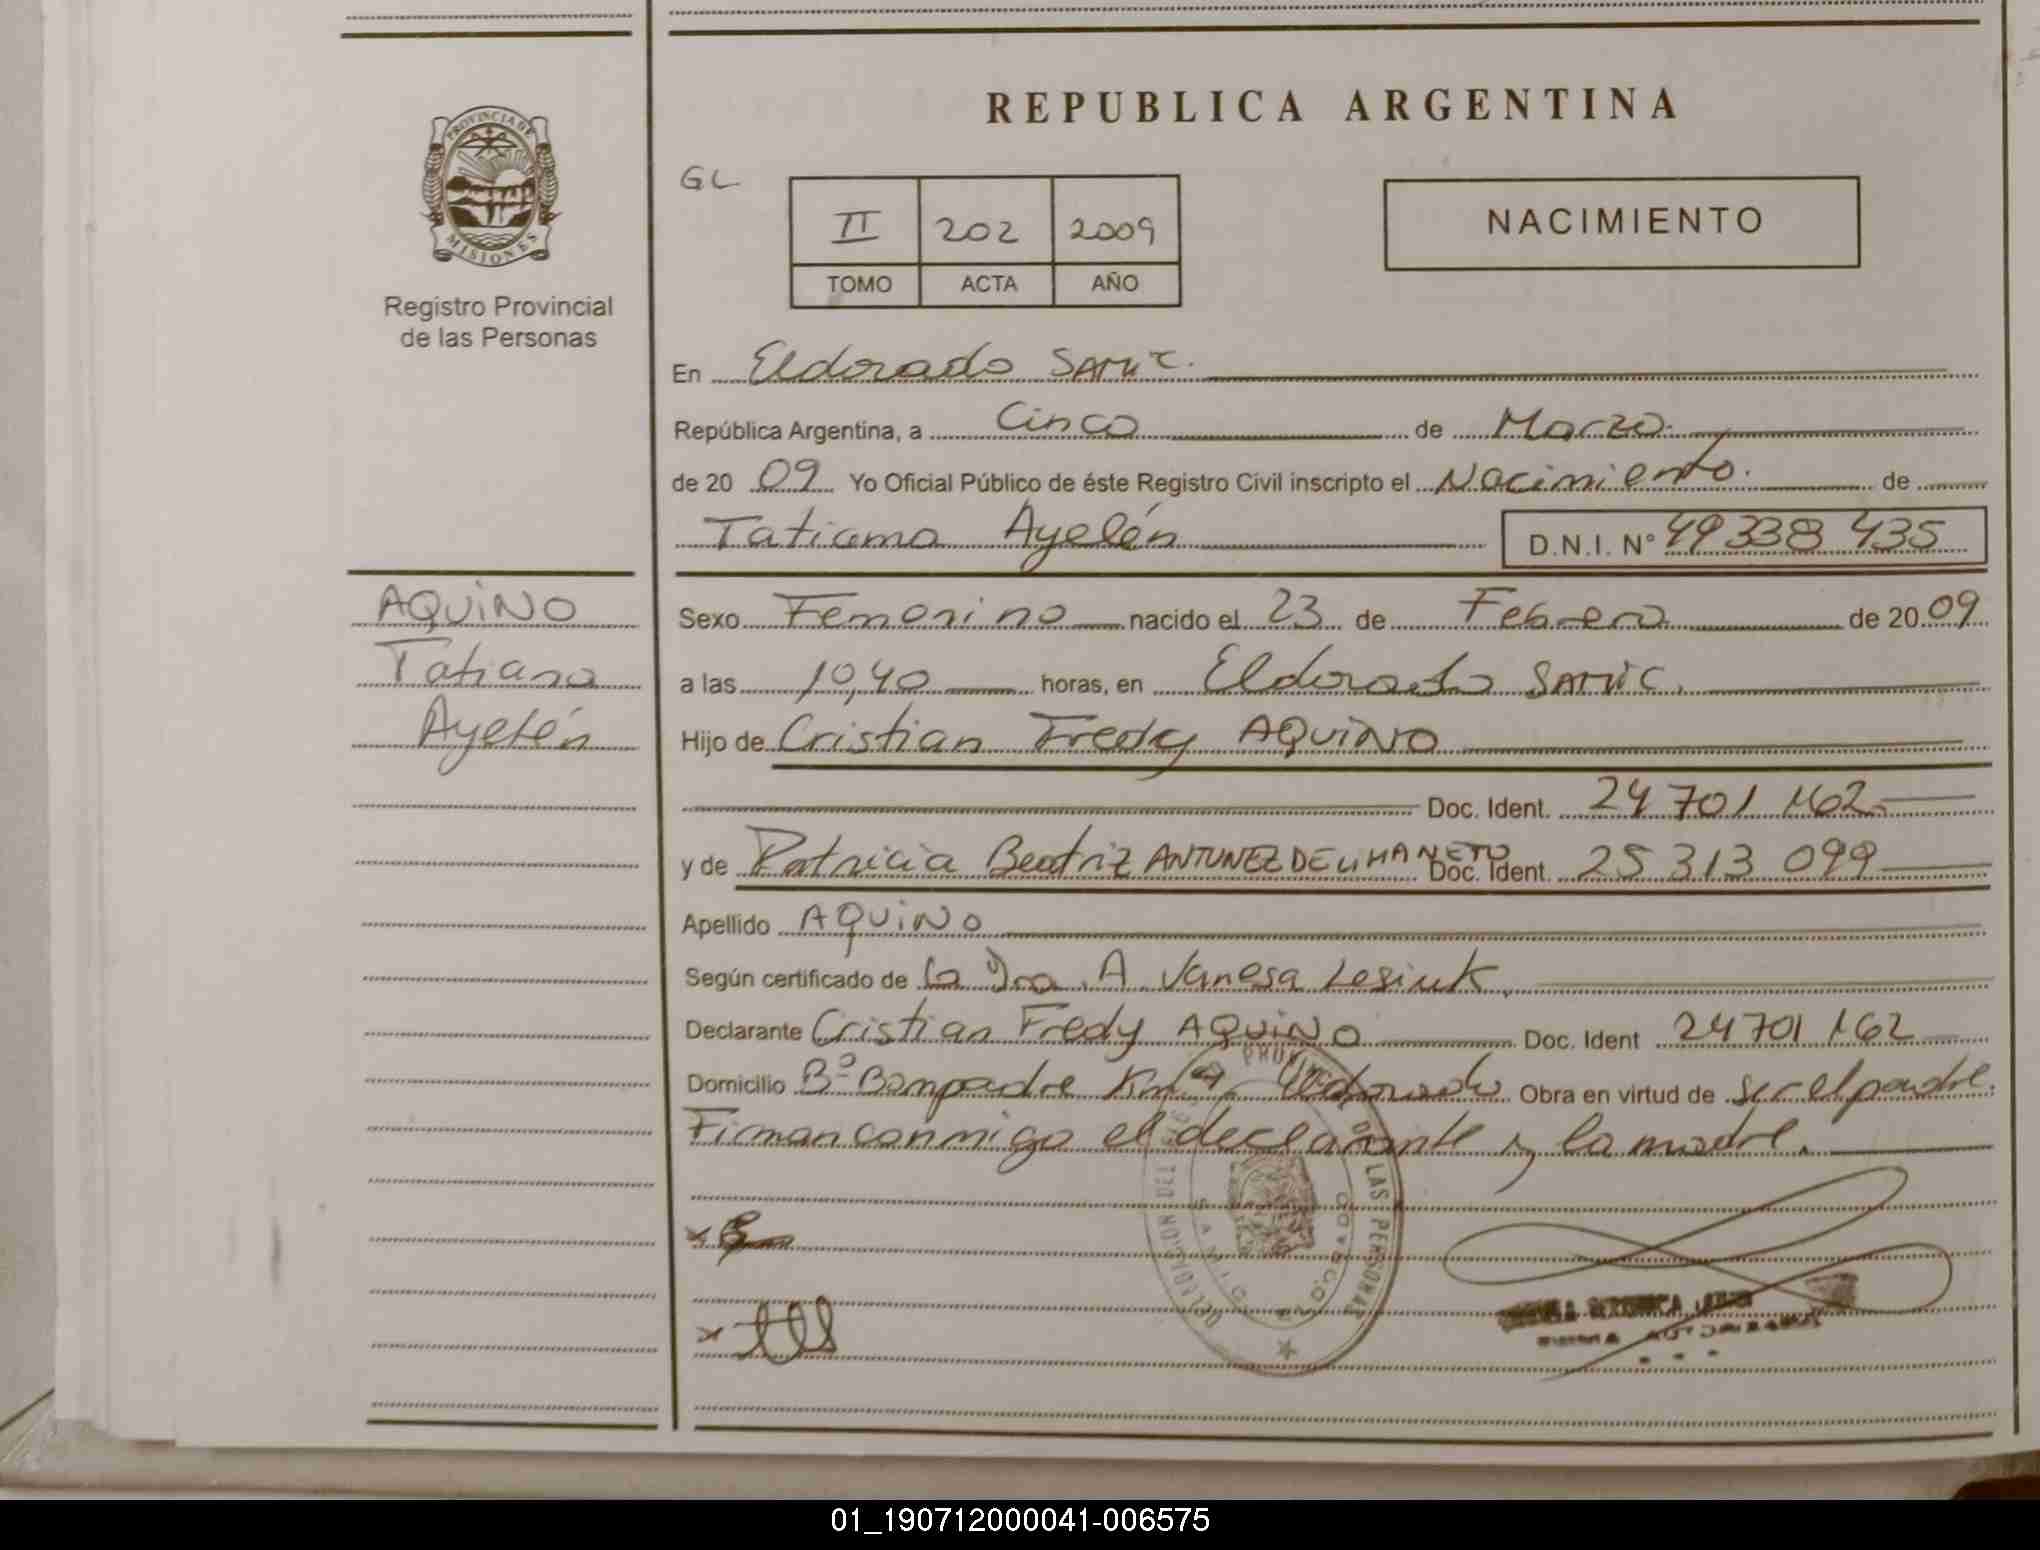 REPUBLICA ARGENTINA
PROVINCIA DE
MISIONES
Registro Provincial
de las Personas
GL
II 202 2009
TOMO ACTA AÑO
NACIMIENTO
En Eldorado SAMIC.
República Argentina, a Cinco de Marzo
de 20 09 Yo Oficial Público de éste Registro Civil inscripto el Nacimiento. de
Tatiana Ayelén D.N.I. N° 49338 435
AQUINO
Tatiana
Ayelén
Sexo Femenino nacido el 23 de Febrero de 20 09
a las 10,40 horas, en Eldorado SAMIC.
Hijo de Cristian Fredy AQUINO
Doc. Ident. 24 701 162
y de Patricia Beatriz ANTUNEZ DE LIMA NETO Doc. Ident. 25 313 099
Apellido AQUINO
Según certificado de la Dra. A Vanesa Lesiuk
Declarante Cristian Fredy AQUINO Doc. Ident 24701 162
Domicilio Bº Bompadre Km Eldorado Obra en virtud de ser el padre.
Firman conmigo el declarante y la madre.
DE LAS PERSONAS
ELDORADO
01_190712000041-006575